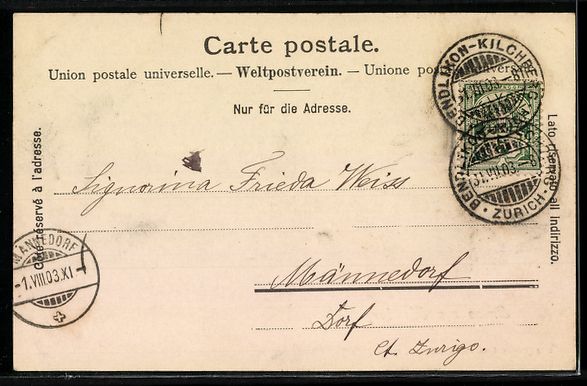 Carte postale.
Union postale universelle. — Weltpostverein. — Unione po
Nur für die Adresse.
Côté réservé à l'adresse.
Lato all indirizzo.
Signorina Frieda Weiss
Männedorf
Dorf
Ct. Zurigo.
MÄNNEDORF
-1.VIII.03.XI-
BENDLIKON-KILCHBE
31.VII.03.
ZÜRICH